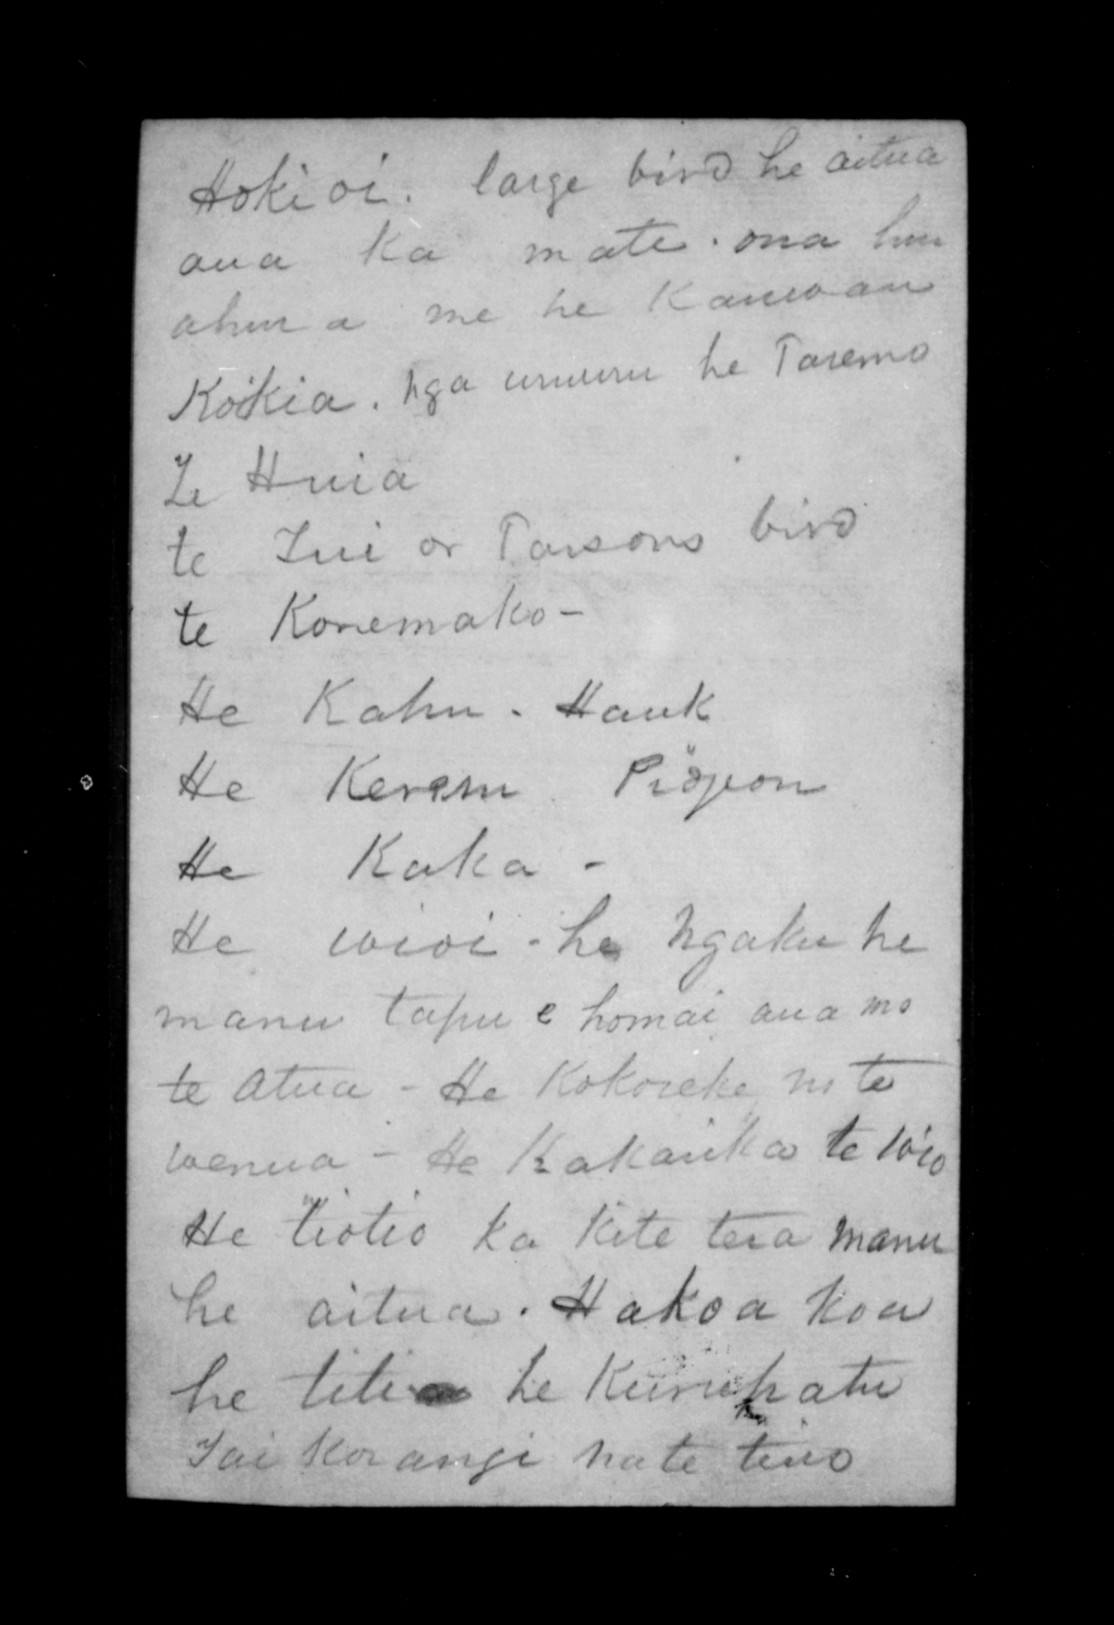 Hokioi. large bird he aitua
ana ka mate. ona huu
ahua me he Kauwau
Kokia. nga uruuru he Taremo
Te Huia
te Tui or Parsons bird
te Koremako -
He Kahu. Hauk
He Kereru Pidjeon
He Kaka -
He wioi - he Ngaku he
manu tapu e homai ana mo
te atua - He Kokoreke no te
wenua - He Kakarika te Wio
He tiotio ka kite tera manu
he aitua. Hakoa koa
he titi he Kuru patu
Tai Korangi na te tino